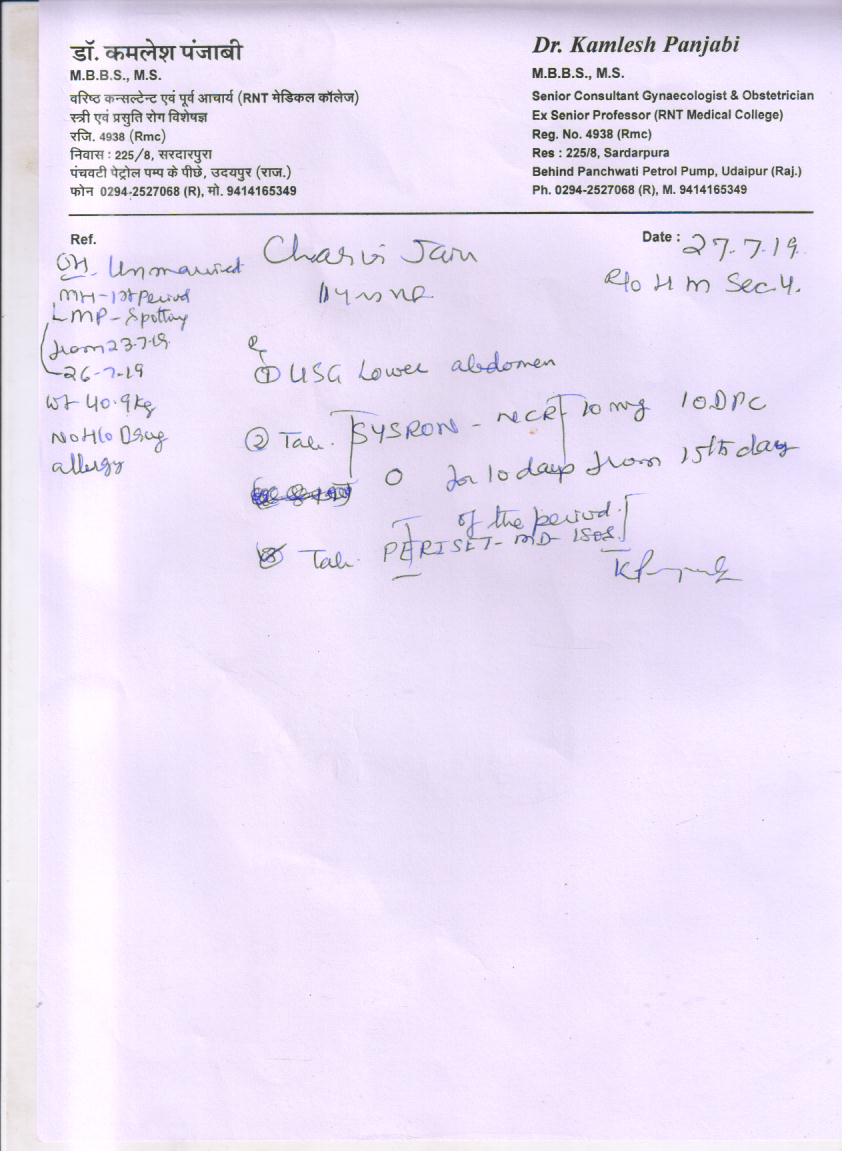 डॉ. कमलेश पंजाबी
M.B.B.S., M.S.
वरिष्ठ कन्सल्टेन्ट एवं पूर्व आचार्य (RNT मेडिकल कॉलेज)
स्त्री एवं प्रसुति रोग विशेषज्ञ
रजि. 4938 (Rmc)
निवास : 225/8, सरदारपुरा
पंचवटी पेट्रोल पम्प के पीछे, उदयपुर (राज.)
फोन 0294-2527068 (R), मो. 9414165349
Dr. Kamlesh Panjabi
M.B.B.S., M.S.
Senior Consultant Gynaecologist & Obstetrician
Ex Senior Professor (RNT Medical College)
Reg. No. 4938 (Rmc)
Res : 225/8, Sardarpura
Behind Panchwati Petrol Pump, Udaipur (Raj.)
Ph. 0294-2527068 (R), M. 9414165349
Ref.
Date : 27.7.19.
Charvi Jain
R/o H M Sec.4.
OH. Unmarried
MH - 1st Period
LMP - Spotting
from 23.7.19
- 26-7-19
Wt 40.9kg
No H/o Drug
allergy
① USG Lower abdomen
② Tab. SYSRON - NCR 10 mg 10
for 10 days from 15th day
of the period.
Tab. PERISET - MD - SOS